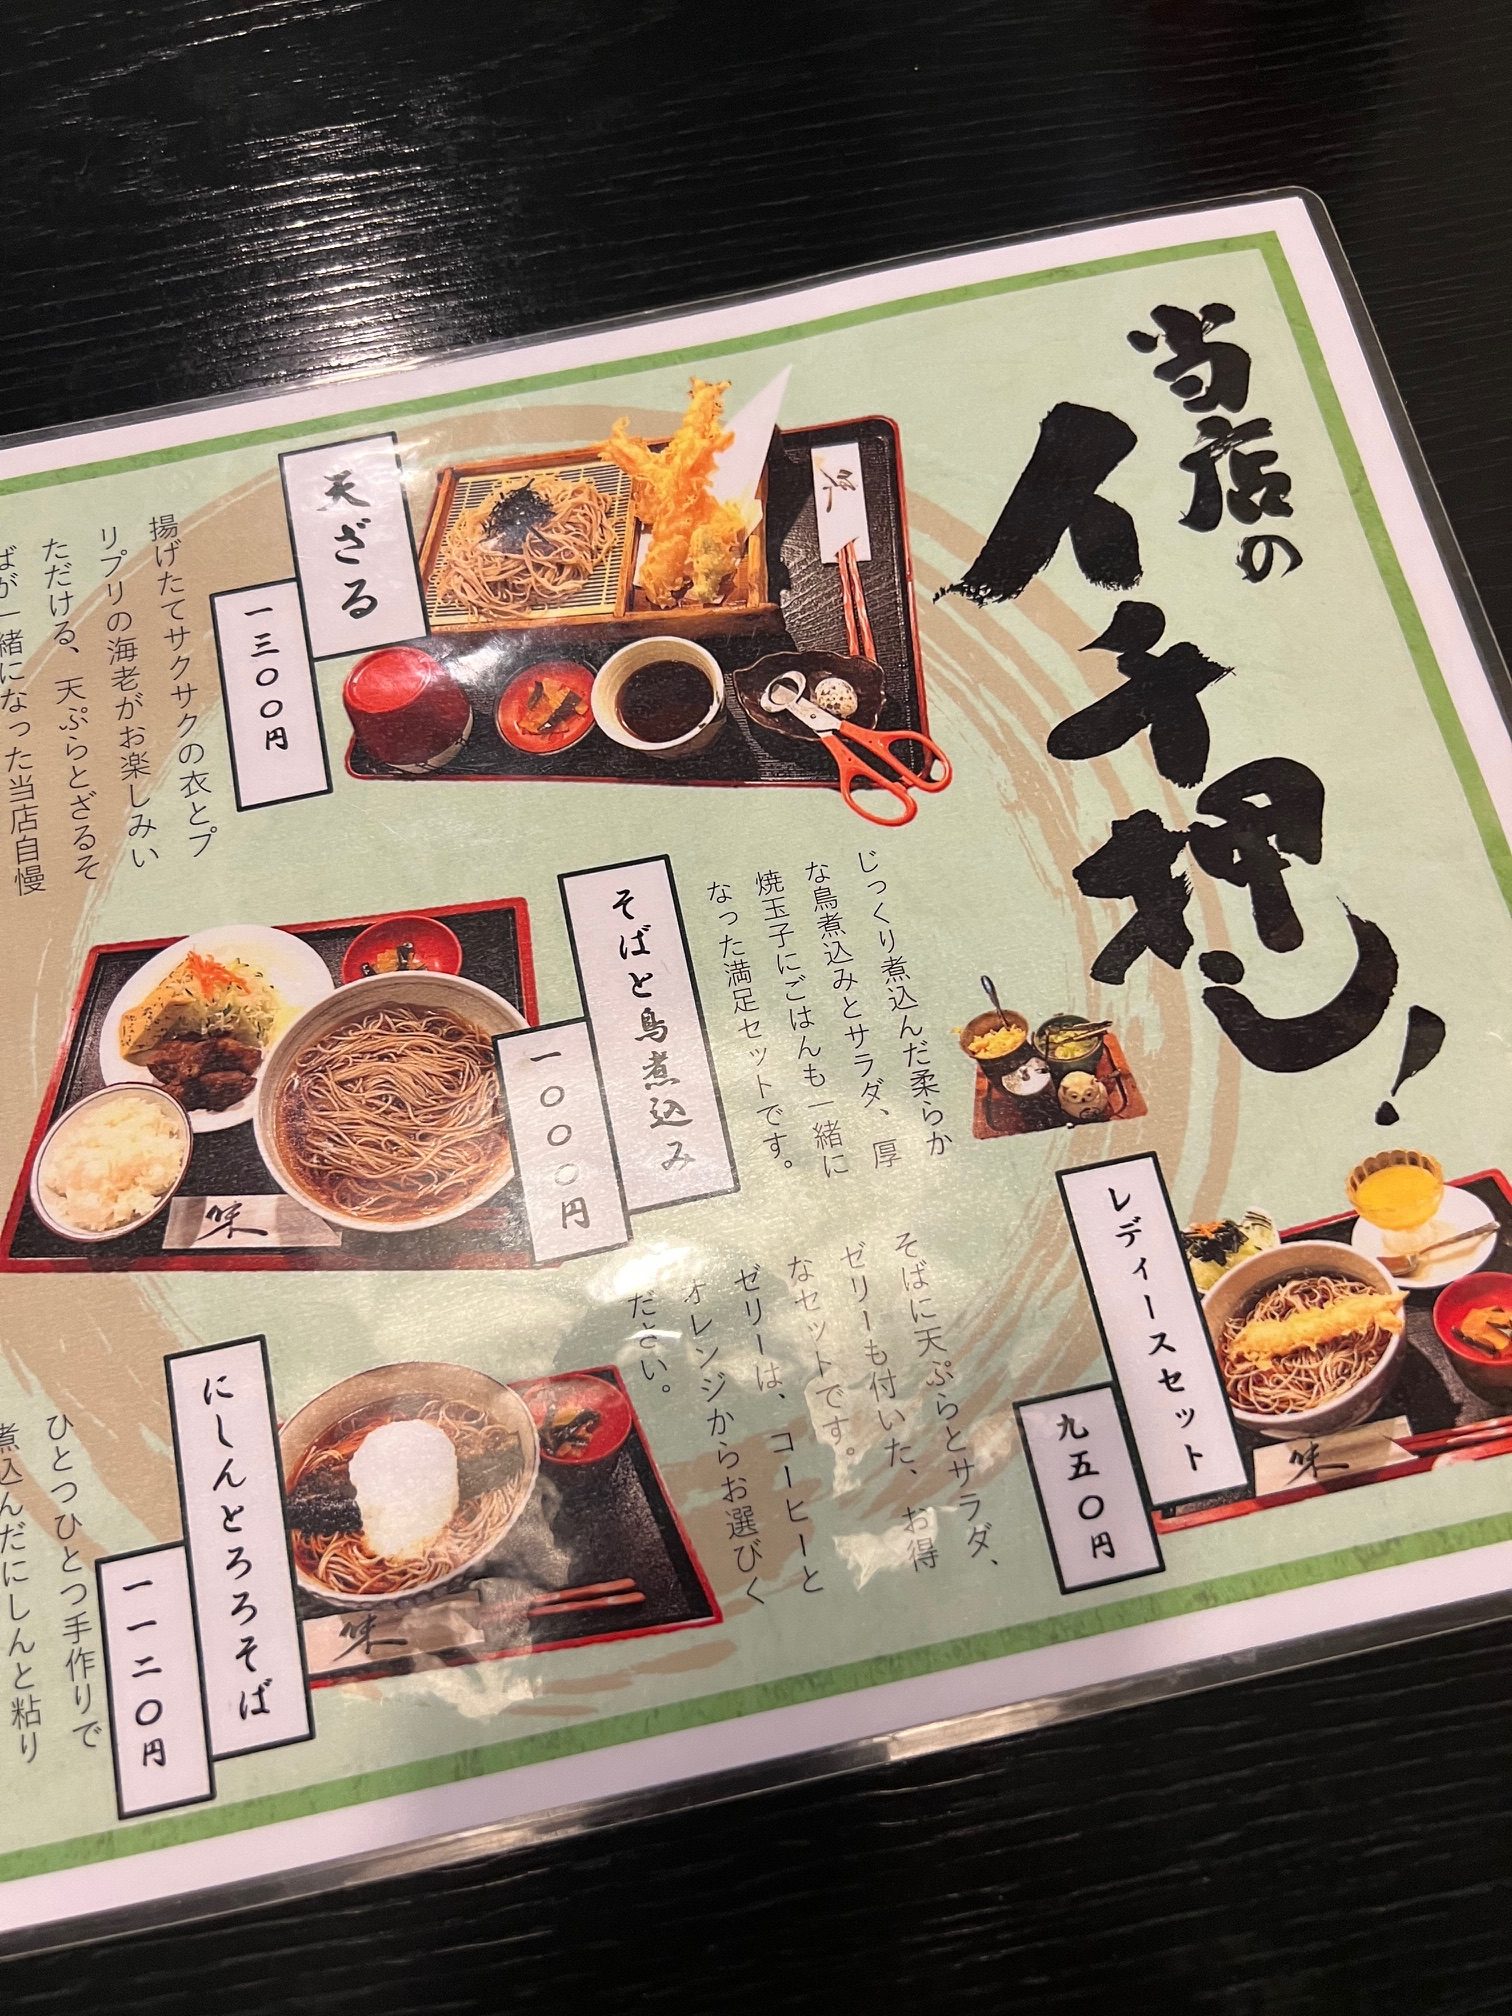 当店の
イチ押し!
レディースセット
九五〇円
そばに天ぷらとサラダ、
ゼリーも付いた、お得
なセットです。
ゼリーは、コーヒーと
オレンジからお選びく
ださい。
そばと鳥煮込み
一〇〇〇円
じっくり煮込んだ柔らか
な鳥煮込みとサラダ、厚
焼玉子にごはんも一緒に
なった満足セットです。
天ざる
一三〇〇円
揚げたてサクサクの衣とプ
リプリの海老がお楽しみい
ただける、天ぷらとざるそ
ばが一緒になった当店自慢
にしんとろろそば
一一二〇円
ひとつひとつ手作りで
煮込んだにしんと粘り
味
味
味